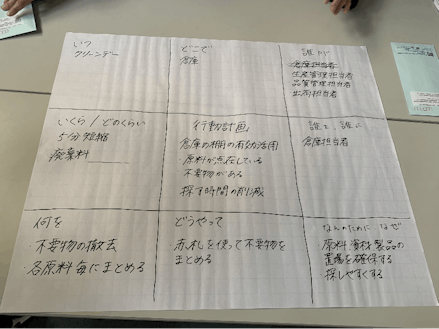 いつ
クリーンデー
どこで
倉庫
誰が
倉庫担当者
生産管理担当者
品質管理担当者
出荷担当者
いくら/どのくらい
5分短縮
廃棄料
「行動計画」
倉庫の棚の有効活用
・原料が点在している
不要物がある
探す時間の削減
誰と、誰に
倉庫担当者
何を
・不要物の撤去
・各原料毎にまとめる
どうやって
赤札を使って不要物を
まとめる
なんのために なぜ
・原料 資材 製品の
置場を確保する
・探しやすくする